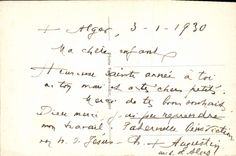 + Alger, 3-1-1930
Ma chère enfant
Heureuse sainte année à toi
à ton mari et à tes chers petits.
Merci de tes bons souhaits.
Dieu merci j'ai pu reprendre
mon travail. Paternelle bénédiction
en N. S. Jésus-Ch. + Augustin
arc. d'Alger